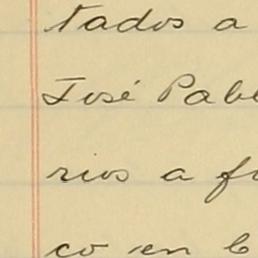 tados a
José Pabl
rios a fi
co en b